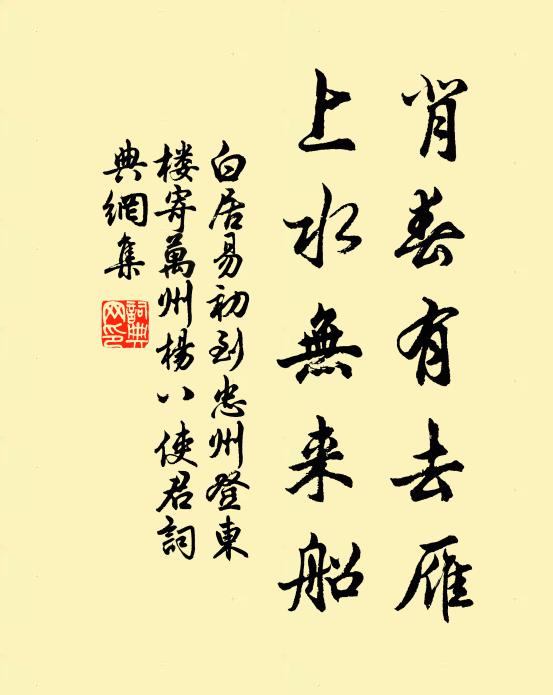 背春有去雁
上水無来船
白居易初到忠州登東
楼寄萬州楊八使君詞
典網集
詞典
网印